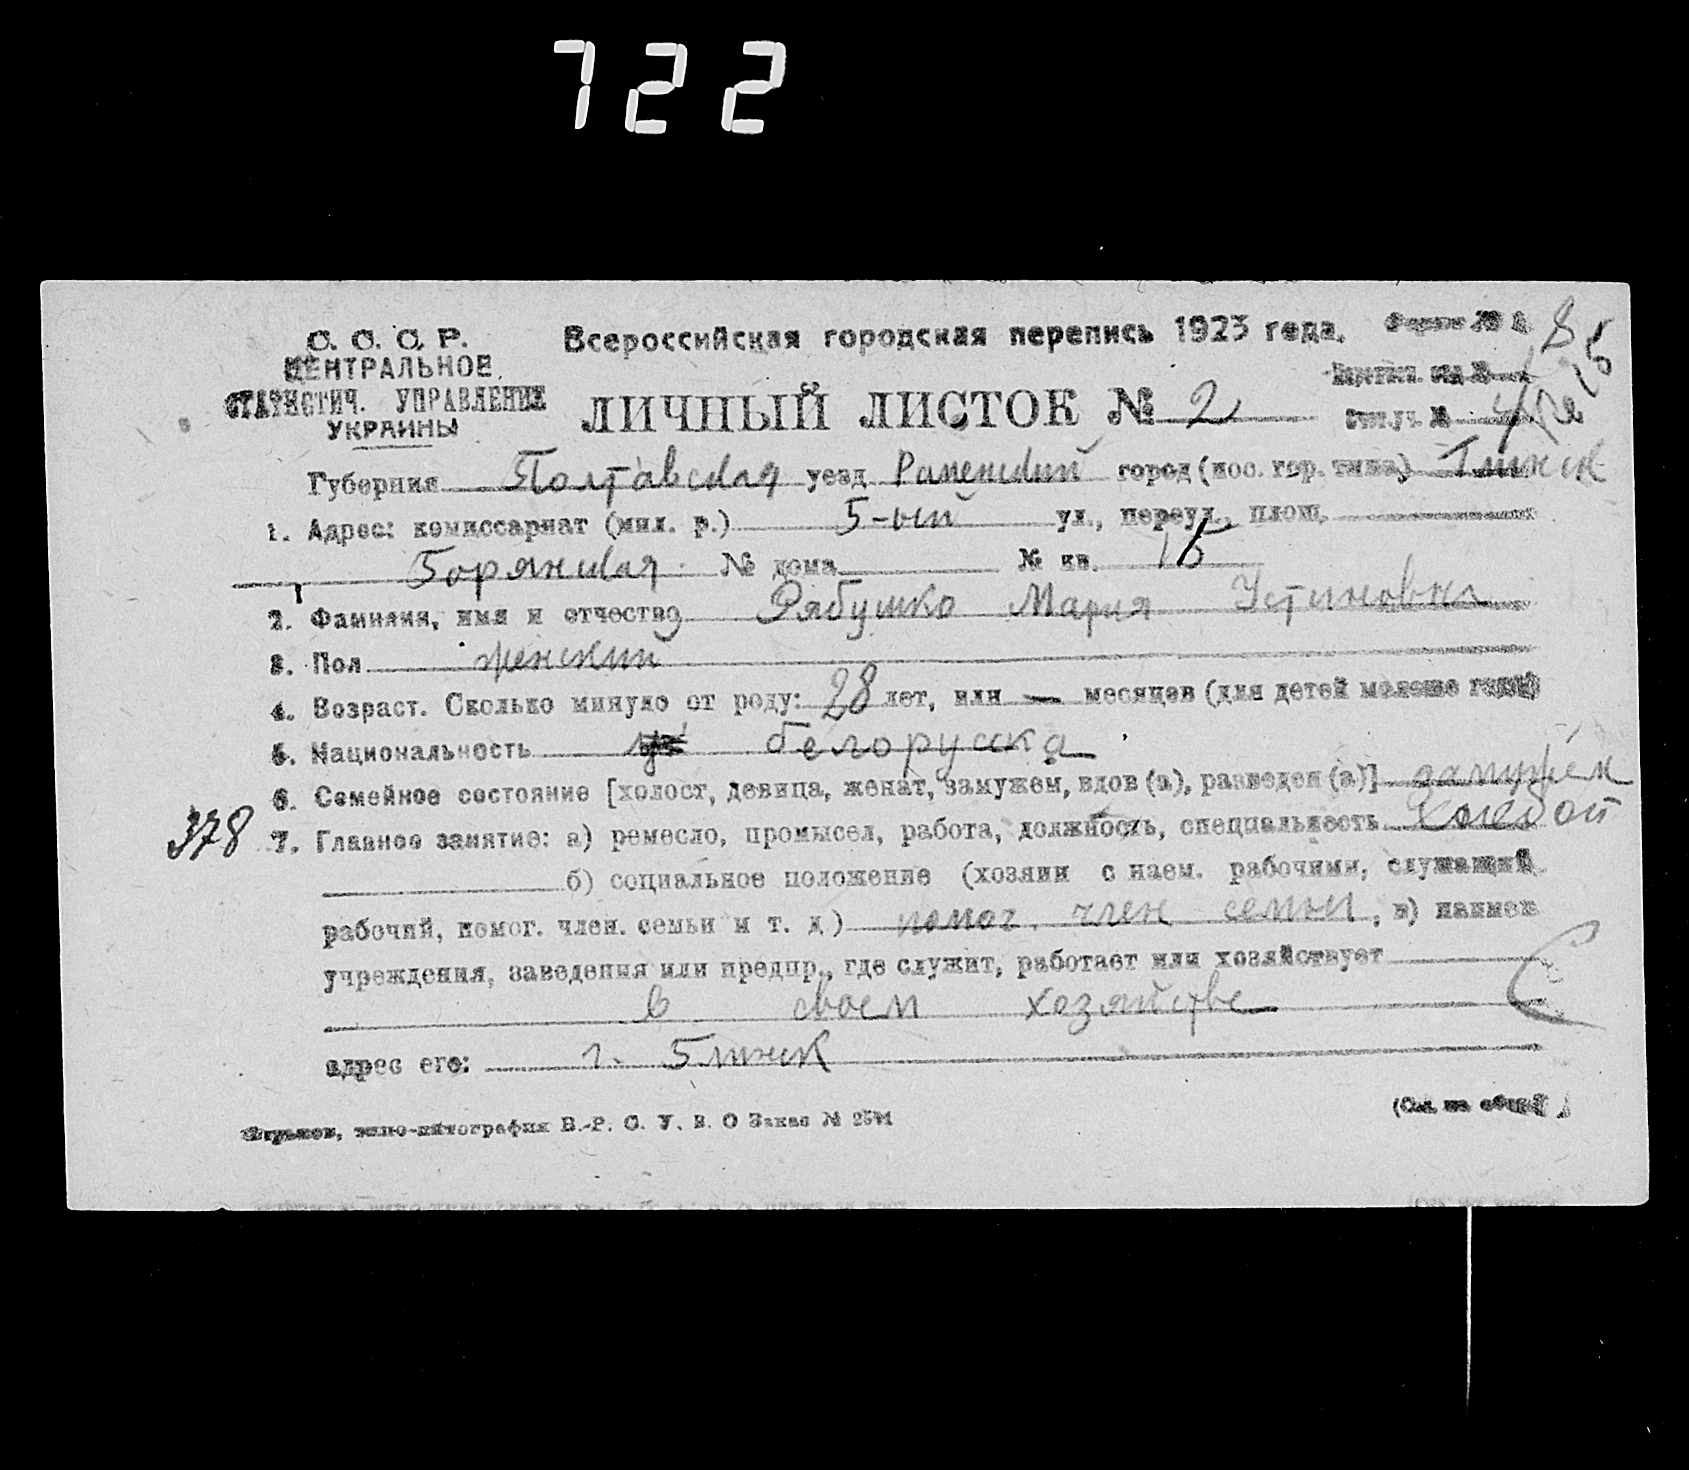 722
С. С. С. Р.
ЦЕНТРАЛЬНОЕ
СТАТИСТИЧ. УПРАВЛЕНИЕ
УКРАИНЫ
Всероссийская городская перепись 1923 года.
ЛИЧНЫЙ ЛИСТОК № 2
Губерния Полтавская уезд город (пос. гор. типа)
1. Адрес: комиссариат (мил. р.) 5-ый ул., переул., площ.
№ дома № кв.
2. Фамилия, имя и отчество Рябушко Мария Устиновна
3. Пол женский
4. Возраст. Сколько минуло от роду: 28 лет, или — месяцев (для детей моложе года)
5. Национальность белорусска
6. Семейное состояние [холост, девица, женат, замужем, вдов (а), разведен (а)] замужем
378 7. Главное занятие: а) ремесло, промысел, работа, должность, специальность
б) социальное положение (хозяин с наем. рабочими, служащий
рабочий, помог. член. семьи и т. д) помог. член семьи, в) наимен
учреждения, заведения или предпр., где служит, работает или хозяйствует
в своем хозяйстве
адрес его: г.
типо-литография В.-Р. С. У. В. О Заказ №
(См. на обор